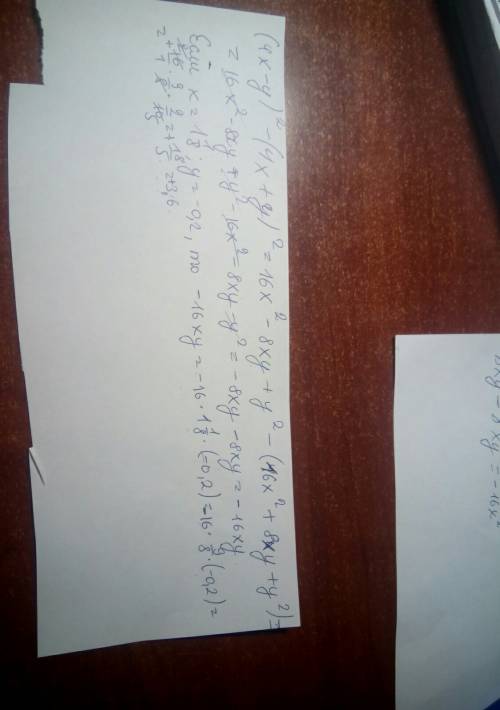 (4x-y)² - (4x+y)² = 16x² - 8xy + y² - (16x² + 8xy + y²) =
= 16x² - 8xy + y² - 16x² = 8xy - y² = - 8xy - 8xy = - 16xy.
Если x = 1 1/8; y = -0,2, то -16xy = -16 · 1 1/8 · (-0,2) = 16 · 9/8 · (-0,2) =
= + 16/1 · 9/8 · 2/10 = + 18/5 = +3,6.
8xy - 8xy = -16x